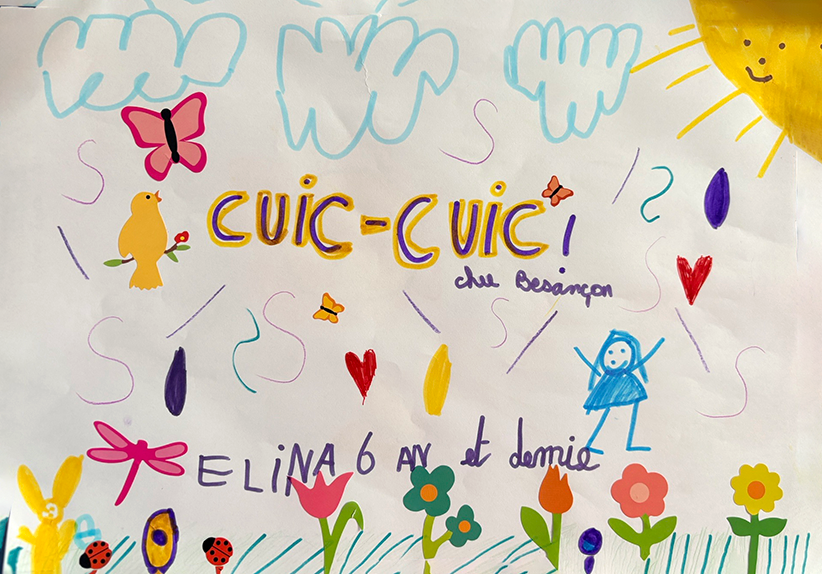 CUIC-CUIC!
chu Besançon
ELINA 6 AN et demie